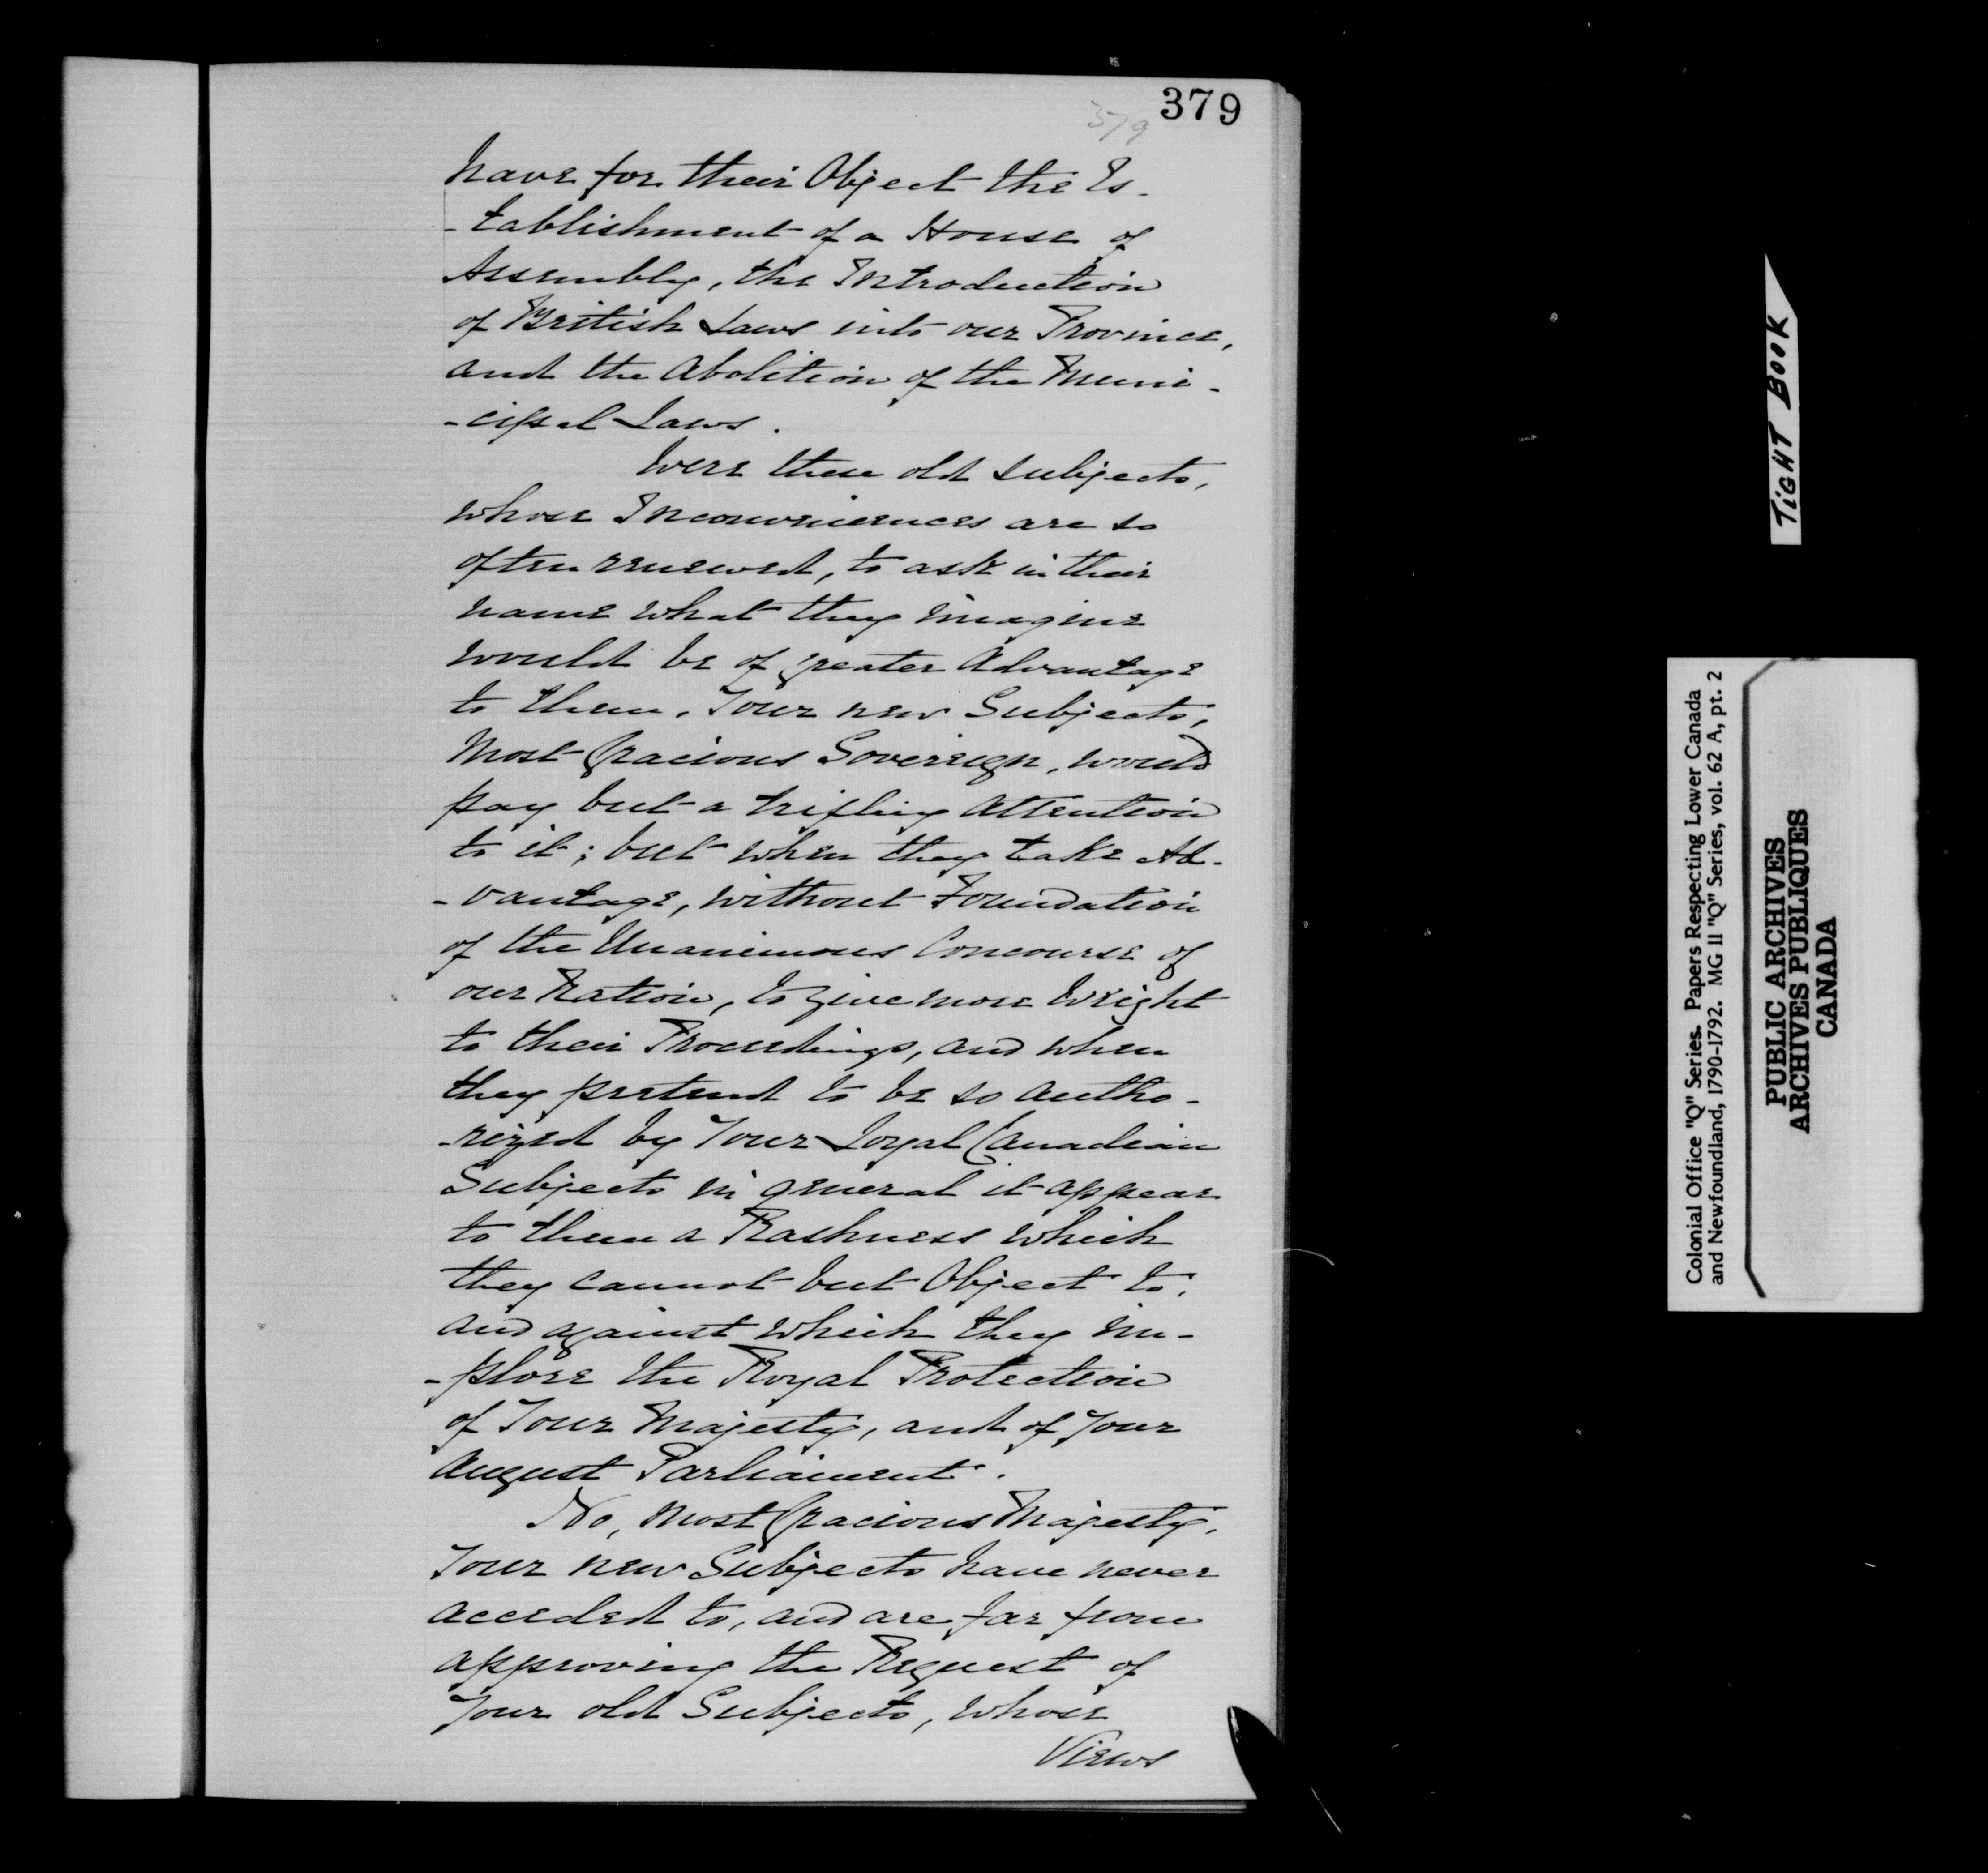 379
379
have for their Object the Es-
-tablishment of a House of
Assembly, the Introduction
of British Laws into our Province,
and the Abolition of the Muni-
-cipal Laws.
Were these old subjects,
whose Inconveniences are so
often renewed, to ask in their
name what they imagine
would be of greater Advantage
to them, Your new Subjects,
Most Gracious Sovereign, would
pay but a trifling Attention
to it; but when they take Ad-
-vantage, without Foundation
of the Unanimous Concourse of
our Nation, to give more Weight
to their Proceedings, and when
they pretend to be so autho-
-rized by Your Loyal Canadian
Subjects in general it appear
to them a Rashness which
they cannot but Object to,
and against which they im-
-plore the Royal Protection
of Your Majesty, and of Your
August Parliament.
No, Most Gracious Majesty,
Your new Subjects have never
acceded to, and are far from
approving the Request of
Your old Subjects, whose
Views
TIGHT BOOK
Colonial Office "Q" Series. Papers Respecting Lower Canada
and Newfoundland, 1790-1792. MG 11 "Q" Series, vol. 62 A, pt. 2
PUBLIC ARCHIVES
ARCHIVES PUBLIQUES
CANADA